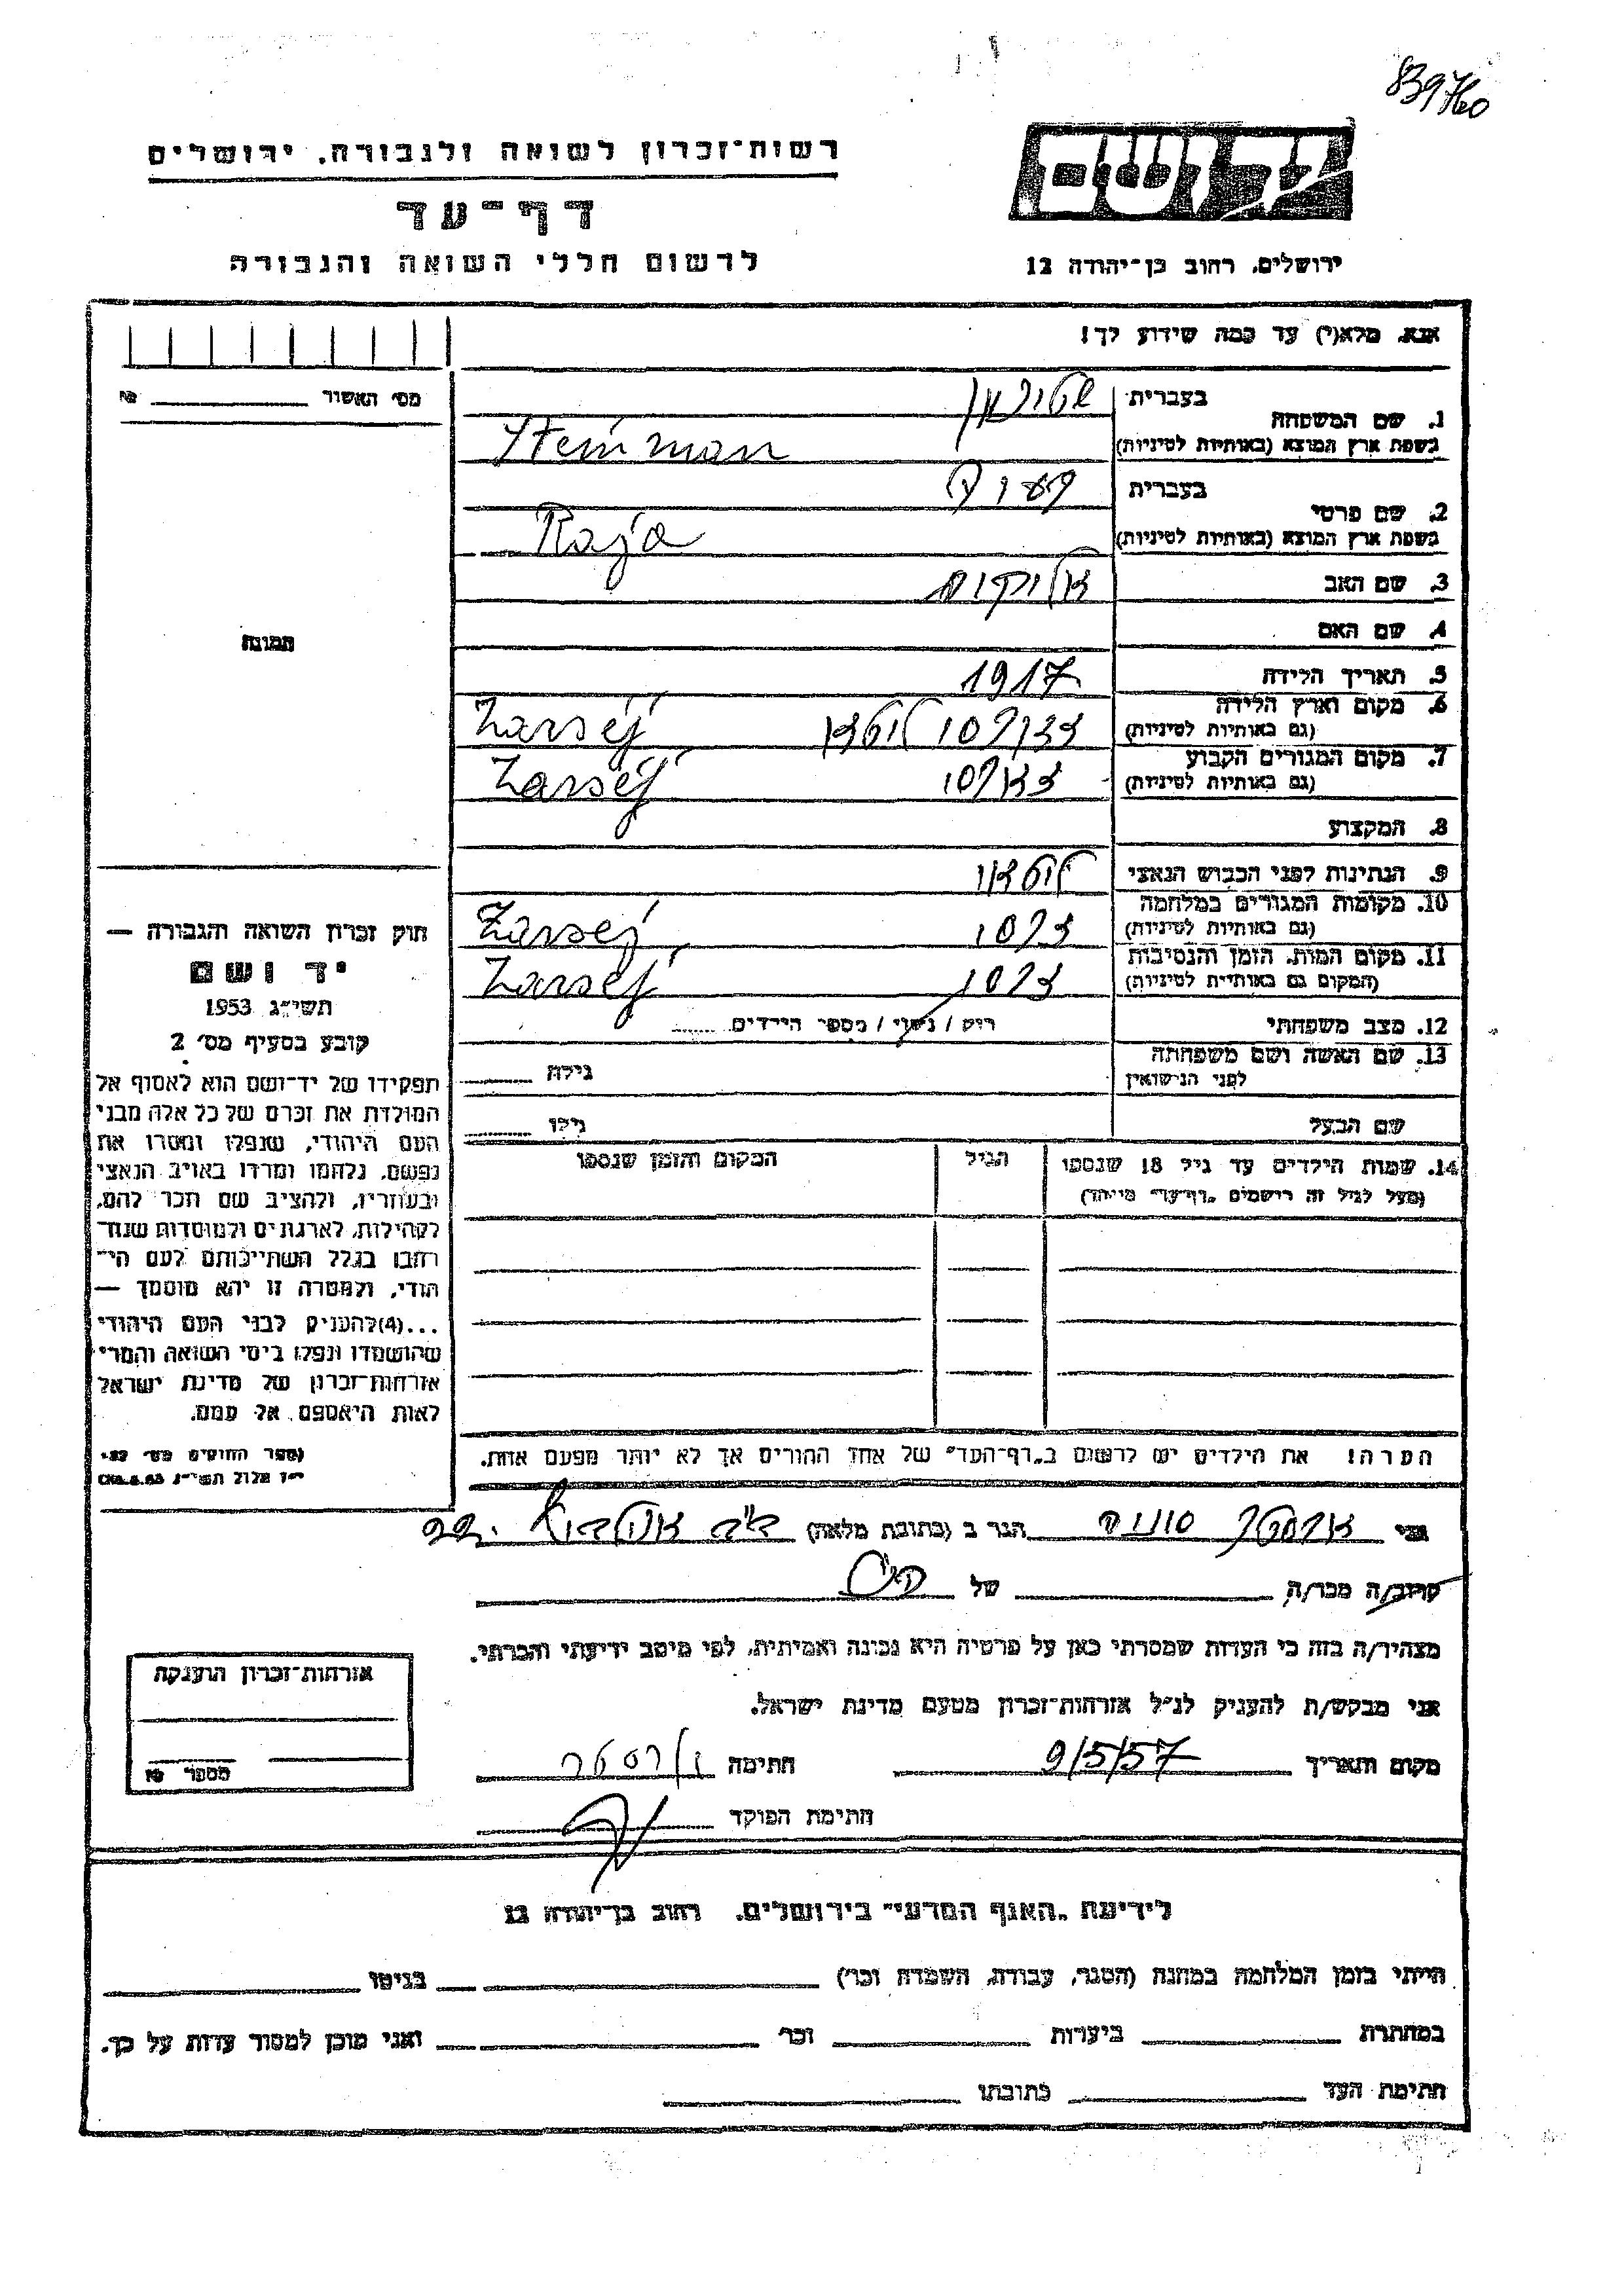 839760
יד ושם
רשות־זכרון לשואה ולגבורה, ירושלים
דף־עד
לרשום חללי השואה והגבורה
ירושלים, רחוב בן־יהודה 12
אנא, מלא(י) עד כמה שידוע לך!
מס׳ האשור № 
1. שם המשפחה
בעברית
בשפת ארץ המוצא (באותיות לטיניות) Steinman
2. שם פרטי
בעברית
בשפת ארץ המוצא (באותיות לטיניות) Raja
3. שם האב
4. שם האם
5. תאריך הלידה 1917
6. מקום וארץ הלידה
(גם באותיות לטיניות) Zarséj
7. מקום המגורים הקבוע
(גם באותיות לטיניות) Zarséj
8. המקצוע
9. הנתינות לפני הכבוש הנאצי
10. מקומות המגורים במלחמה
(גם באותיות לטיניות) Zarséj
11. מקום המות, הזמן והנסיבות
(המקום גם באותיות לטיניות) Zarséj
12. מצב משפחתי רווק / נשוי / מספר הילדים
13. שם האשה ושם משפחתה
לפני הנישואין גילה
שם הבעל גילו
14. שמות הילדים עד גיל 18 שנספו הגיל המקום והזמן שנספו
(מעל לגיל זה רישמים „דף־עד״ מיוחד)
הערה! את הילדים יש לרשום ב„דף־העד״ של אחד ההורים אך לא יותר מפעם אחת.
תמונה
חוק זכרון השואה והגבורה —
יד ושם
תשי״ג 1953
קובע בסעיף מס׳ 2
תפקידו של יד־ושם הוא לאסוף אל
המולדת את זכרם של כל אלה מבני
העם היהודי, שנפלו ומסרו את
נפשם, נלחמו ומרדו באויב הנאצי
ובעוזריו, ולהציב שם וזכר להם,
לקהילות, לארגונים ולמוסדות שנח־
רבו בגלל השתייכותם לעם הי־
הודי, ולמטרה זו יהא מוסמך —
...(4)להעניק לבני העם היהודי
שהושמדו ונפלו בימי השואה והמרי
אזרחות־זכרון של מדינת ישראל
לאות היאספם אל עמם.
אני הגר ב (כתובת מלאה)
קרוב/ה מכר/ה של
מצהיר/ה בזה כי העדות שמסרתי כאן על פרטיה היא נכונה ואמיתית, לפי מיטב ידיעתי והכרתי.
אני מבקש/ת להעניק לנ״ל אזרחות־זכרון מטעם מדינת ישראל.
מקום ותאריך 9/5/57 חתימה
חתימת הפוקד
אזרחות־זכרון הוענקה
מספר №
לידיעת „האגף המדעי״ בירושלים, רחוב בן־יהודה 12
הייתי בזמן המלחמה במחנה (הסגר, עבודה, השמדה וכו׳) בגיטו
במחתרת ביערות וכו׳ ואני מוכן למסור עדות על כך.
חתימת העד כתובתו